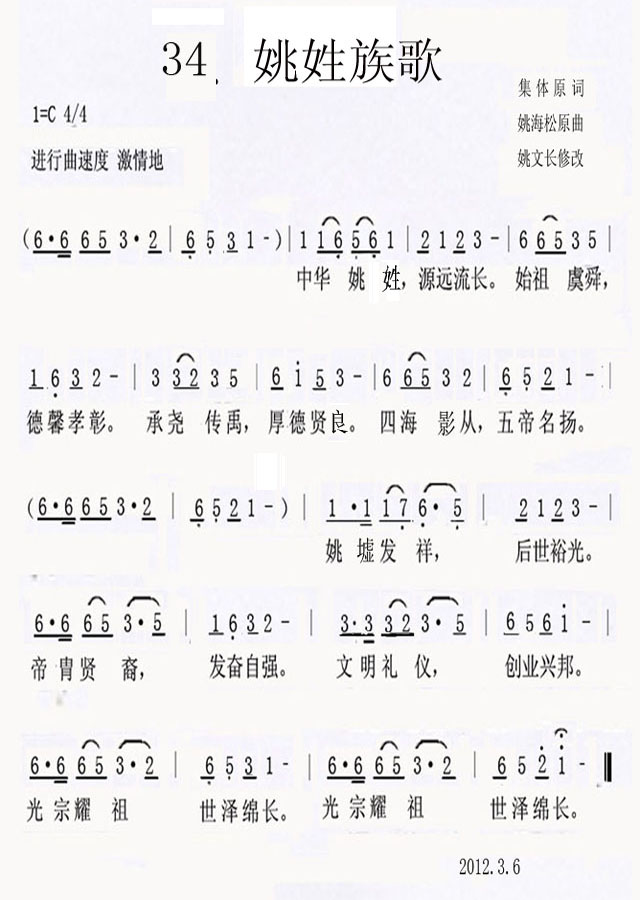 34. 姚姓族歌
集体原词
1=C 4/4
姚海松原曲
进行曲速度 激情地
姚文长修改
(6·6 65 3·2 | 6 5 3 1 -) | 1 1 6 5 6 1 | 2 1 2 3 - | 6 6 5 3 5 |
中华 姚 姓, 源远流长。 始祖 虞舜,
1 6 3 2 - | 3 3 2 3 5 | 6 i 5 3 - | 6 6 5 3 2 | 6 5 2 1 - |
德馨孝彰。 承尧 传禹, 厚德贤良。 四海 影从, 五帝名扬。
(6·6 65 3·2 | 6 5 2 1 -) | 1·1 1 7 6·5 | 2 1 2 3 - |
姚 墟 发 祥, 后世裕光。
6·6 65 3·5 | 1 6 3 2 - | 3·3 32 3·5 | 6 5 6 i - |
帝 胄 贤 裔, 发奋自强。 文 明 礼 仪, 创业兴邦。
6·6 65 3·2 | 6 5 3 1 - | 6·6 65 3·2 | 6 5 2 i - ‖
光 宗 耀 祖 世泽绵长。 光 宗 耀 祖 世泽绵长。
2012.3.6